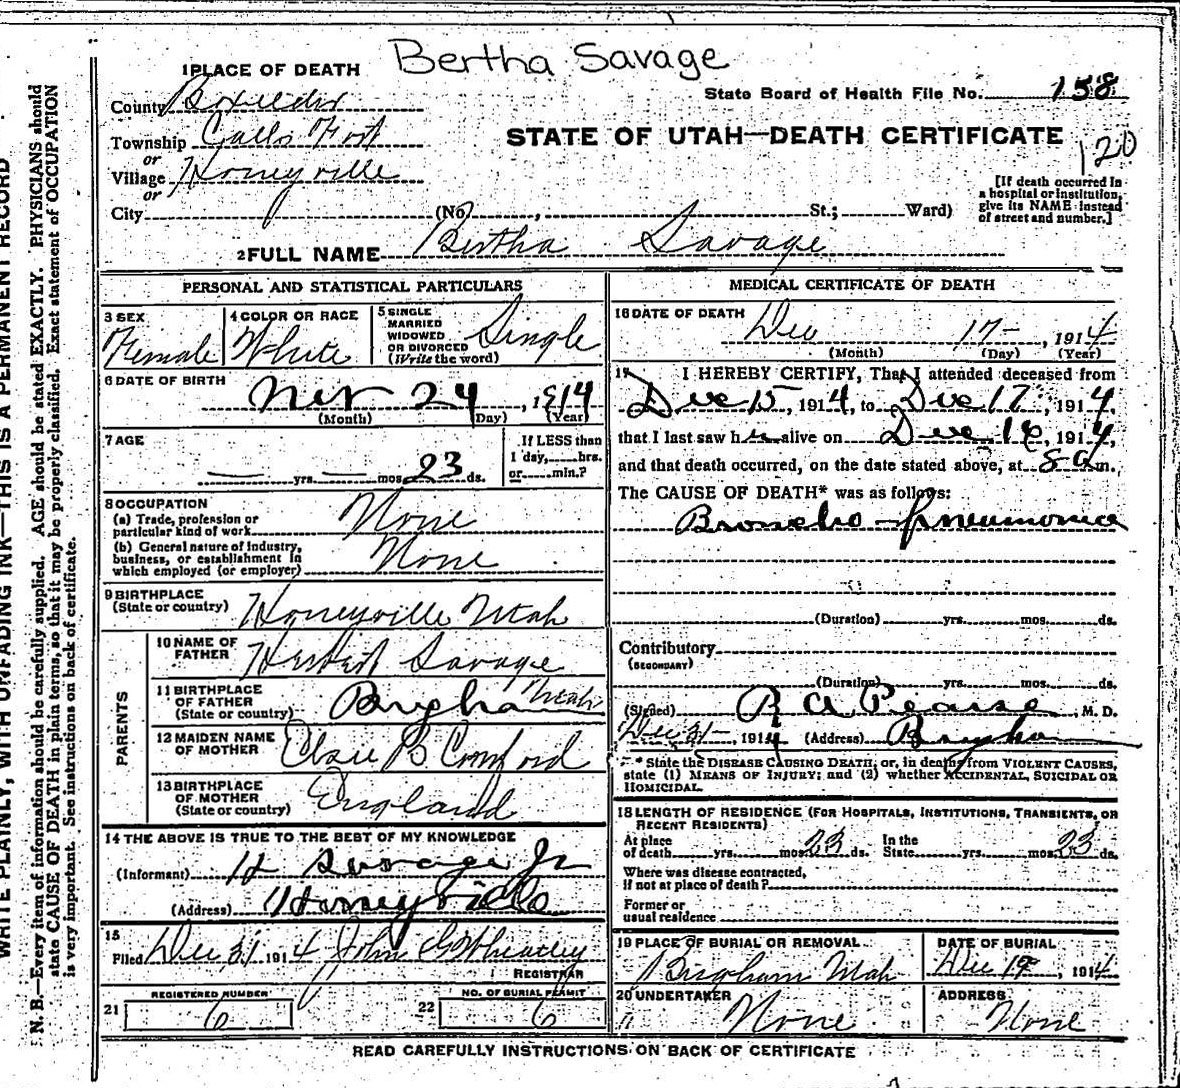 Bertha Savage
1 PLACE OF DEATH
County Boxelder
State Board of Health File No. 158
Township Calls Fort
STATE OF UTAH—DEATH CERTIFICATE
120
or
Village Honeyville
or
[If death occurred in a hospital or institution, give its NAME instead of street and number.]
City (No. , St.; Ward)
2 FULL NAME Bertha Savage
PERSONAL AND STATISTICAL PARTICULARS
3 SEX
Female
4 COLOR OR RACE
White
5 SINGLE
MARRIED
WIDOWED
OR DIVORCED
(Write the word)
Single
6 DATE OF BIRTH
Nov 24, 1914
(Month) (Day) (Year)
7 AGE
— yrs. — mos. 23 ds.
If LESS than
1 day, hrs.
or min.?
8 OCCUPATION
(a) Trade, profession or
particular kind of work None
(b) General nature of industry,
business, or establishment in
which employed (or employer) None
9 BIRTHPLACE
(State or country) Honeyville Utah
PARENTS
10 NAME OF
FATHER Herbert Savage
11 BIRTHPLACE
OF FATHER
(State or country) Brigham Utah
12 MAIDEN NAME
OF MOTHER
13 BIRTHPLACE
OF MOTHER
(State or country) England
14 THE ABOVE IS TRUE TO THE BEST OF MY KNOWLEDGE
(Informant) H Savage Jr
(Address) Honeyville
15
Filed Dec 31 1914 John Wheatley
REGISTRAR
REGISTERED NUMBER
21 6
NO. OF BURIAL PERMIT
22 6
MEDICAL CERTIFICATE OF DEATH
16 DATE OF DEATH
Dec 17 - , 1914
(Month) (Day) (Year)
17 I HEREBY CERTIFY, That I attended deceased from
Dec 15, 1914, to Dec 17, 1914,
that I last saw her alive on Dec 16, 1914,
and that death occurred, on the date stated above, at 8 a m.
The CAUSE OF DEATH* was as follows:
Broncho-pneumonia
(Duration) yrs. mos. ds.
Contributory
(SECONDARY)
(Duration) yrs. mos. ds.
(Signed) R A Pearse, M. D.
Dec 31- , 1914 (Address) Brigham
* State the DISEASE CAUSING DEATH; or, in deaths from VIOLENT CAUSES,
state (1) MEANS OF INJURY; and (2) whether ACCIDENTAL, SUICIDAL OR
HOMICIDAL.
18 LENGTH OF RESIDENCE (FOR HOSPITALS, INSTITUTIONS, TRANSIENTS, OR
RECENT RESIDENTS)
At place In the
of death yrs. mos. 23 ds. State yrs. mos. 23 ds.
Where was disease contracted,
if not at place of death?
Former or
usual residence
19 PLACE OF BURIAL OR REMOVAL
Brigham Utah
DATE OF BURIAL
Dec 19, 1914
20 UNDERTAKER
None
ADDRESS
None
READ CAREFULLY INSTRUCTIONS ON BACK OF CERTIFICATE
WRITE PLAINLY, WITH UNFADING INK—THIS IS A PERMANENT RECORD
N. B.—Every item of information should be carefully supplied. AGE should be stated EXACTLY. PHYSICIANS should
state CAUSE OF DEATH in plain terms, so that it may be properly classified. Exact statement of OCCUPATION
is very important. See instructions on back of certificate.